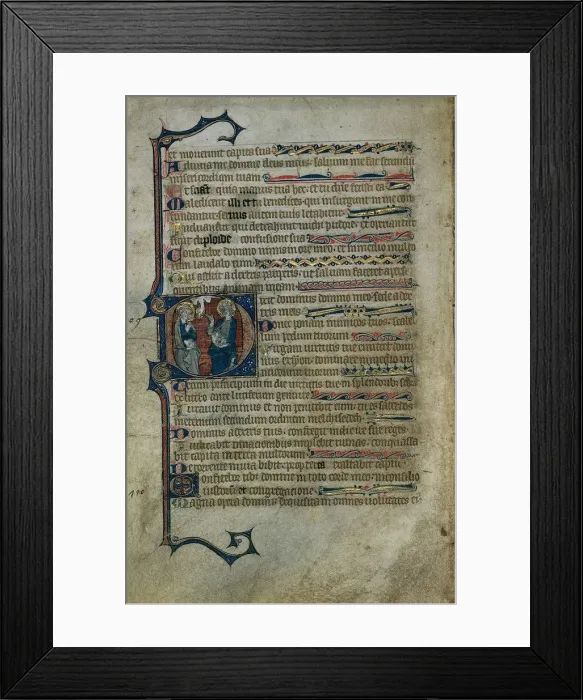 et moverunt capita sua
Adiuva me domine deus meus salvum me fac secundum
misericordiam tuam
quia manus tua hec et tu fecisti ea
Maledicent illi et tu benedices qui insurgunt in me con
fundantur autem tuus letabitur
Induantur qui detrahunt michi pudore et operiantur
sicut diploide confusione sua
Confitebor domino nimis in ore meo et in medio multo
rum laudabo eum
Qui astitit a dextris pauperis ut salvam faceret a perse
quentibus animam meam
Dixit dominus domino meo sede a dex
tris meis
Donec ponam inimicos tuos scabel
lum pedum tuorum
Virgam virtutis tue emittet domi
nus ex syon dominare in medio ini
micorum tuorum
Tecum principium in die virtutis tue in splendoribus
ex utero ante luciferum genui te
Iuravit dominus et non penitebit eum tu es sacerdos
in eternum secundum ordinem melchisedech
Dominus a dextris tuis confregit in die ire sue reges
Iudicabit in nationibus implebit ruinas conquassa
bit capita in terra multorum
De torrente in via bibet propterea exaltabit caput
Confitebor tibi domine in toto corde meo in consilio
iustorum et congregatione
Magna opera domini exquisita in omnes voluntates ei
110